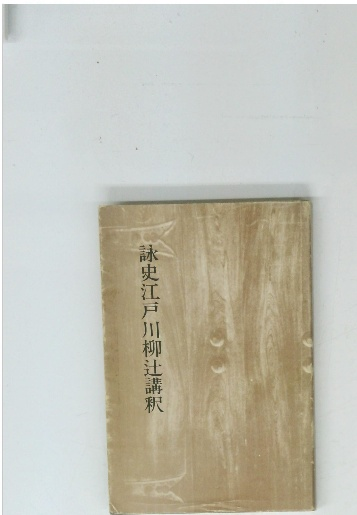 詠史江戸川柳辻講釈